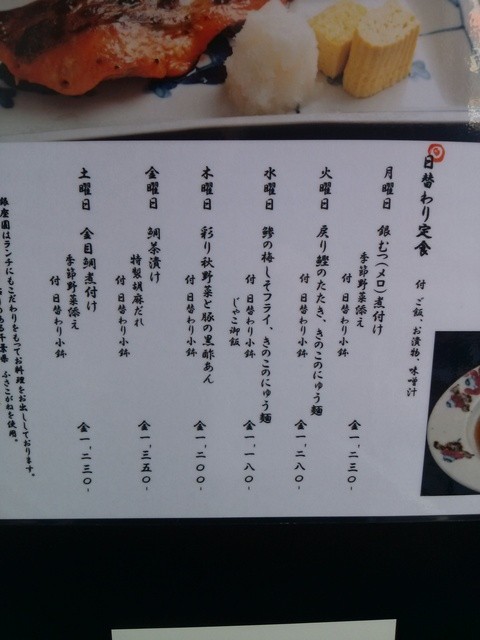 日替わり定食 付 ご飯、お漬物、味噌汁
月曜日 銀むつ(メロ)煮付け
季節野菜添え
付 日替わり小鉢
金一、二三〇-
火曜日 戻り鰹のたたき、きのこのにゅう麺
付 日替わり小鉢
金一、二八〇-
水曜日 鯵の梅しそフライ、きのこのにゅう麺
付 日替わり小鉢
じゃこ御飯
金一、一八〇-
木曜日 彩り秋野菜と豚の黒酢あん
付 日替わり小鉢
金一、二〇〇-
金曜日 鯛茶漬け
特製胡麻だれ
付 日替わり小鉢
金一、三五〇-
土曜日 金目鯛煮付け
季節野菜添え
付 日替わり小鉢
金一、二三〇-
銀座園はランチにもこだわりをもってお料理をお出ししております。
ふさこがねを使用。